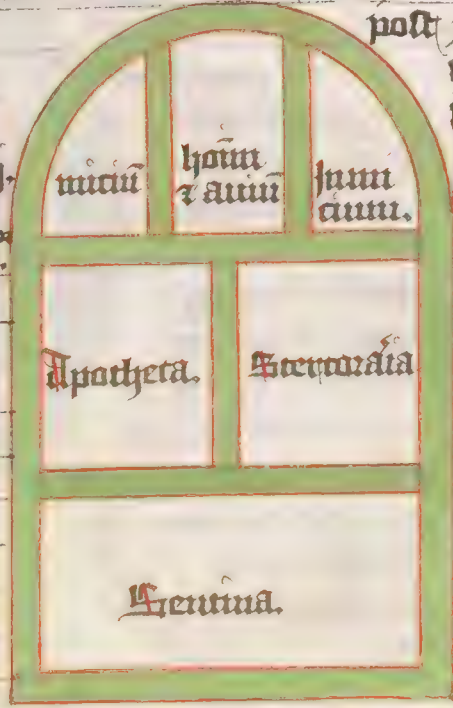 post
miciū
hoīm
⁊ auiū
Inmi
cium.
Apotheca.
Stercoraria
Sentina.